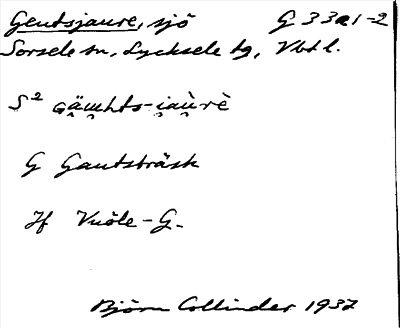 Geutsjaure, sjö G 33a1-2
Sorsele sn, Lycksele tg, Vbtl.
S²
G Gautsträsk
Jf Vuöle-G.
Björn Collinder 1937